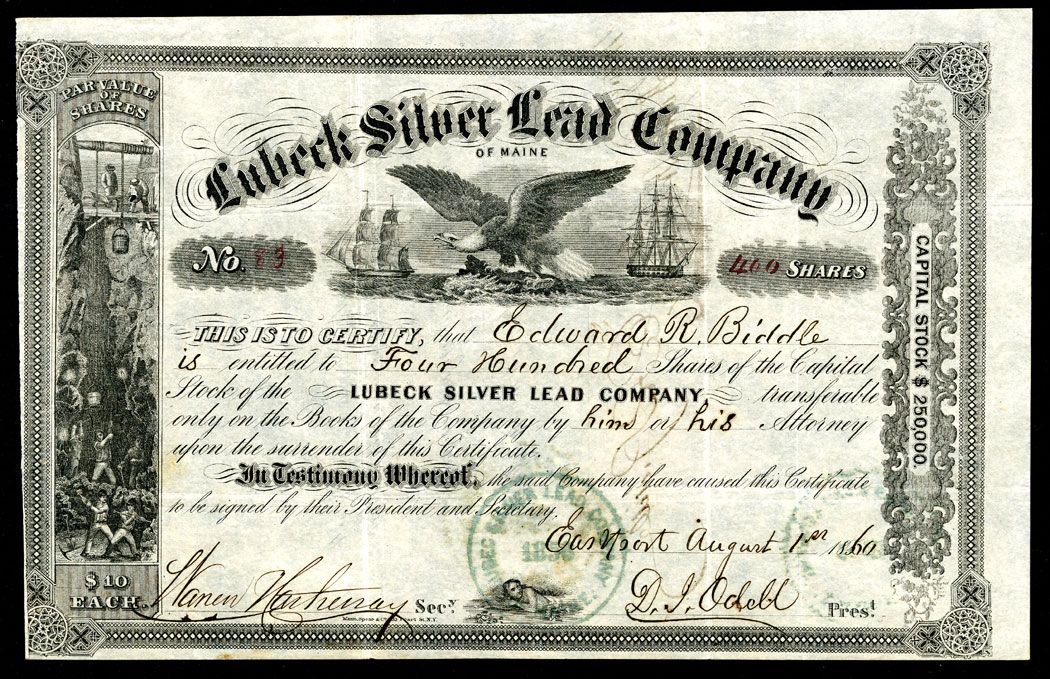 PAR VALUE
OF
SHARES
Lubeck Silver Lead Company
OF MAINE
No. 83
400 SHARES
THIS IS TO CERTIFY, that Edward R. Biddle
is entitled to Four Hundred Shares of the Capital
Stock of the LUBECK SILVER LEAD COMPANY, transferable
only on the Books of the Company by him or his Attorney
upon the surrender of this Certificate.
In Testimony Whereof, the said Company have caused this Certificate
to be signed by their President and Secretary.
Eastport August 1st 1860
Secy.
D. J. Odell Prest.
$10
EACH.
CAPITAL STOCK $ 250,000.